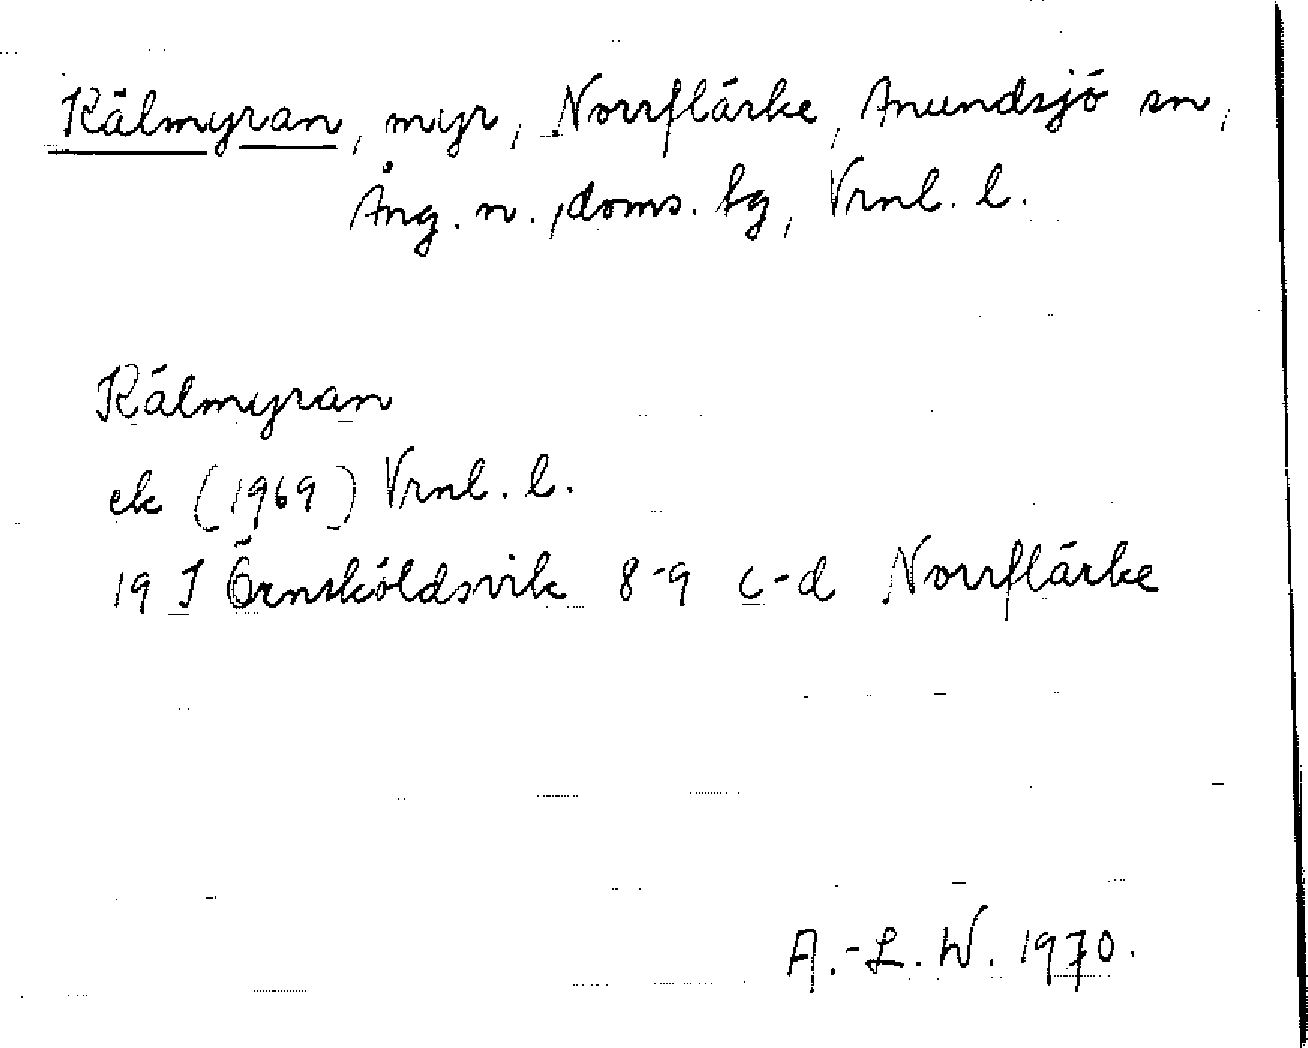 Kälmyran, myr, Norrflärke, Anundsjö sn,
Ång. n., doms. bg, Vrnl. l.
Kälmyran
ek (1969) Vrnl. l.
19 J Örnsköldsvik 8-9 c-d Norrflärke
A.-L. W. 1970.